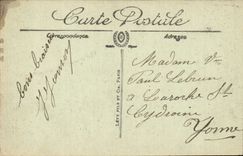 Carte Postale
Correspondance
Adresse
Bons baisers
Madame Vve
Paul Lebrun
à Laroche St
Cydroine
Yonne
LÉVY FILS ET Cie, PARIS